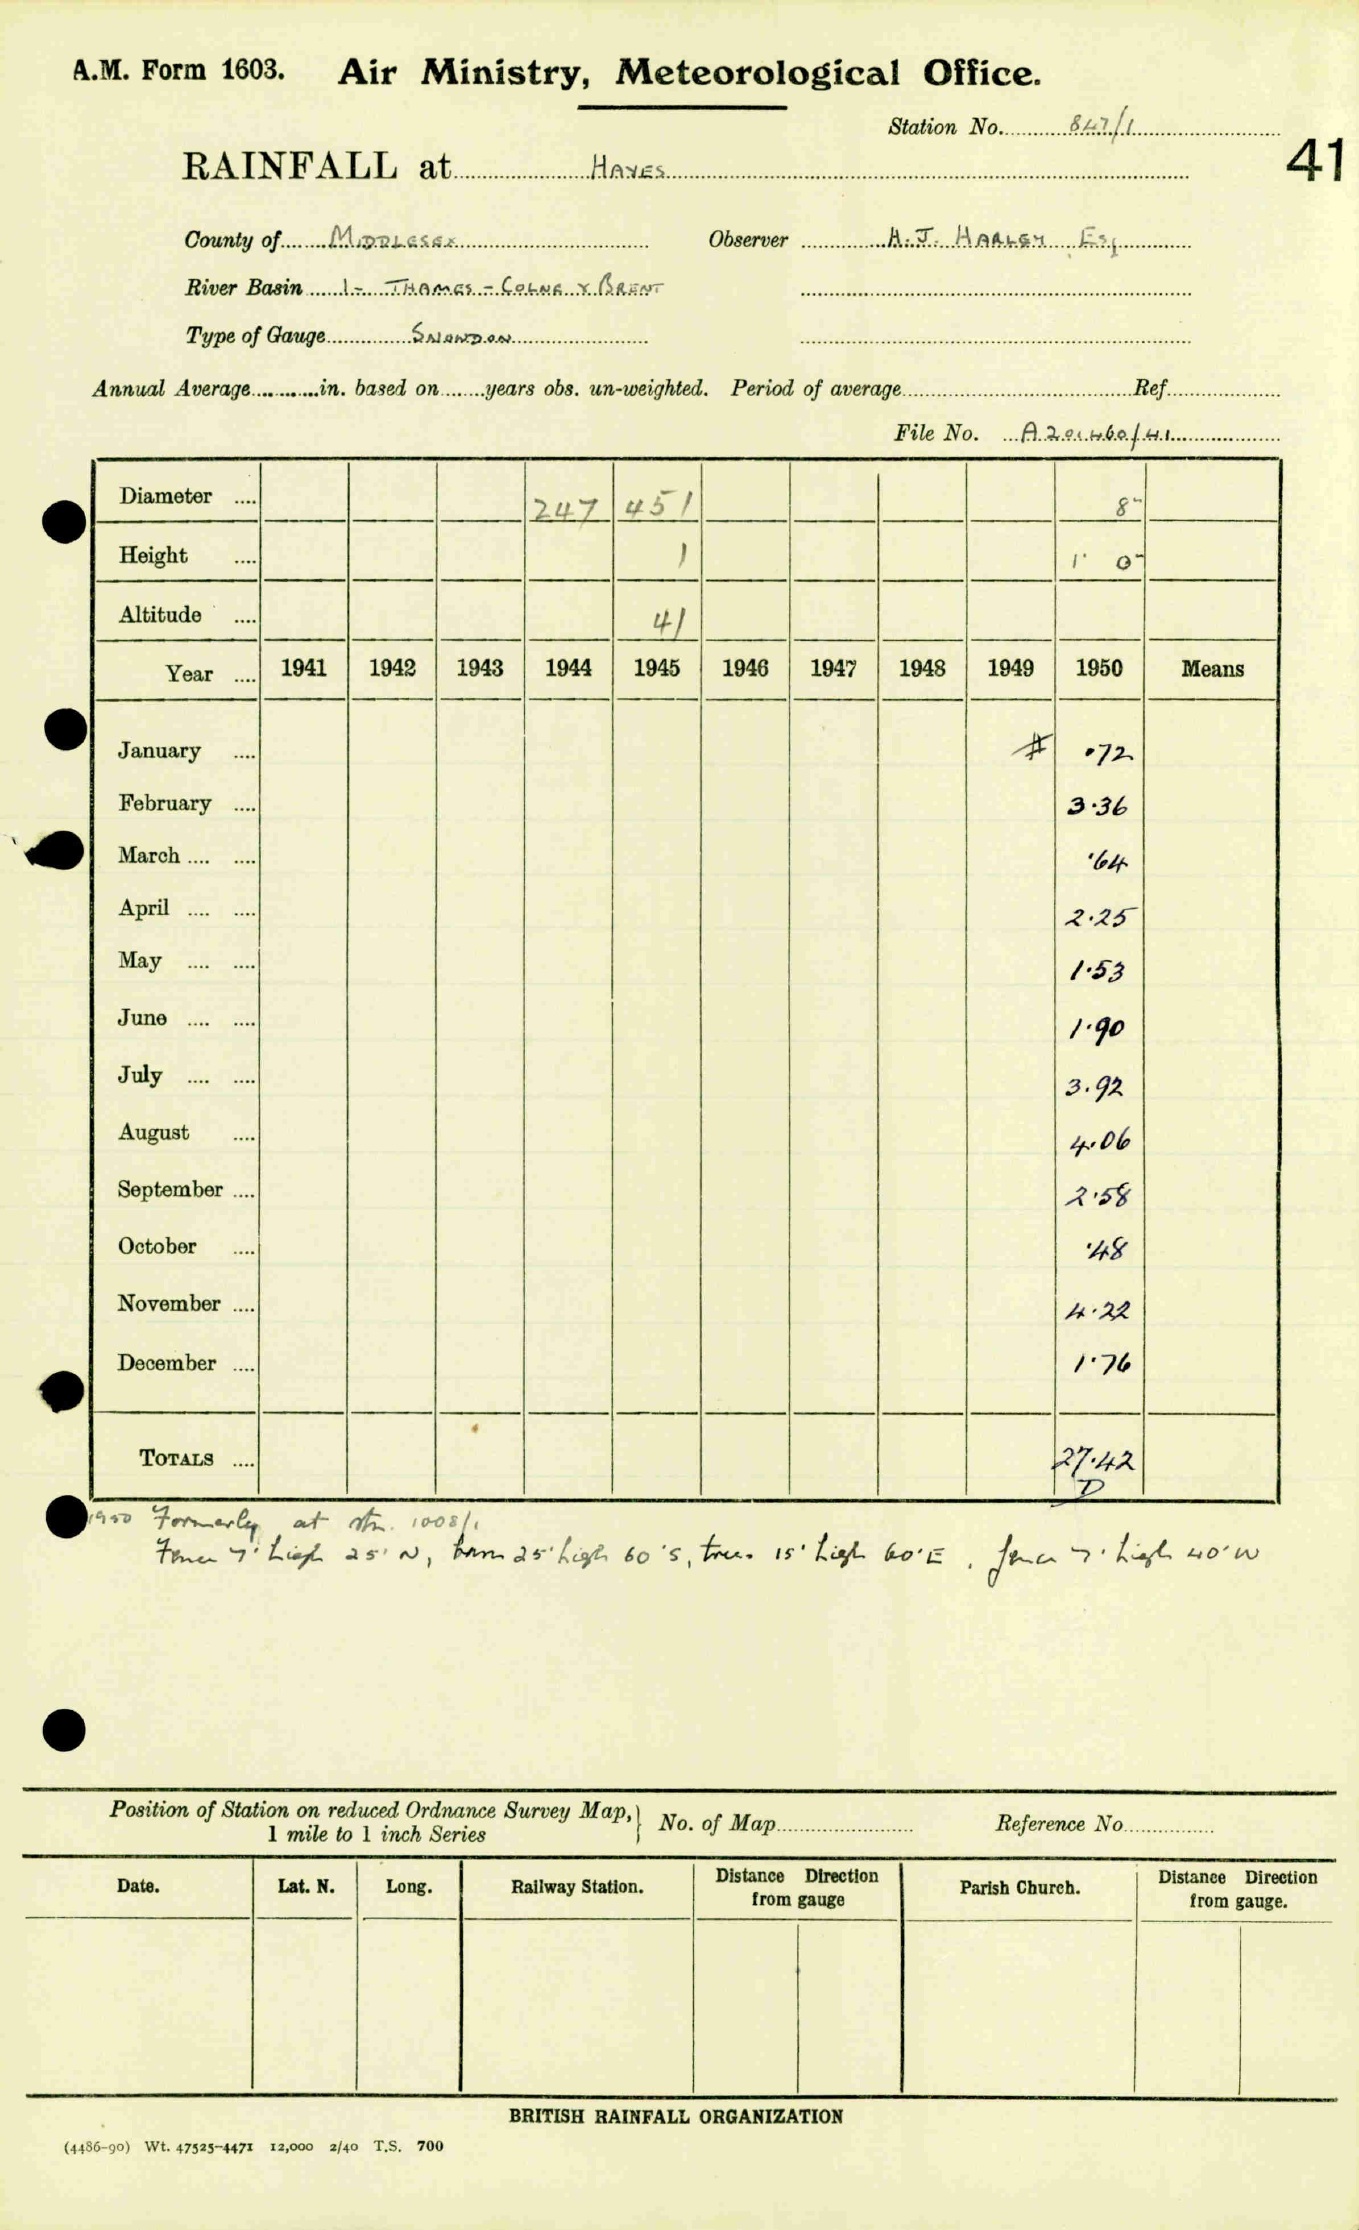 A.M. Form 1603. Air Ministry, Meteorological Office.
Station No. 847/1
41
RAINFALL at HAYES
County of MIDDLESEX Observer H. J. HARLEY Esq
River Basin 1- THAMES - COLNE & BRENT
Type of Gauge SNOWDON
Annual Average in. based on years obs. un-weighted. Period of average Ref.
File No. A201460/41
Diameter .... 247 451 8"
Height .... 1 1' 0"
Altitude .... 41
Year .... 1941 1942 1943 1944 1945 1946 1947 1948 1949 1950 Means
January .... # .72
February .... 3.36
March .... .... .64
April .... .... 2.25
May .... .... 1.53
June .... .... 1.90
July .... .... 3.92
August .... 4.06
September .... 2.58
October .... .48
November .... 4.22
December .... 1.76
TOTALS .... 27.42
D
1950 Formerly at stn. 1008/1
Fence 7' high 25' N, barn 25' high 60' S, trees 15' high 60' E, fence 7' high 40' W
Position of Station on reduced Ordnance Survey Map, } No. of Map Reference No.
1 mile to 1 inch Series
Date. Lat. N. Long. Railway Station. Distance Direction from gauge Parish Church. Distance Direction from gauge.
BRITISH RAINFALL ORGANIZATION
(4486-90) Wt. 47525-4471 12,000 2/40 T.S. 700